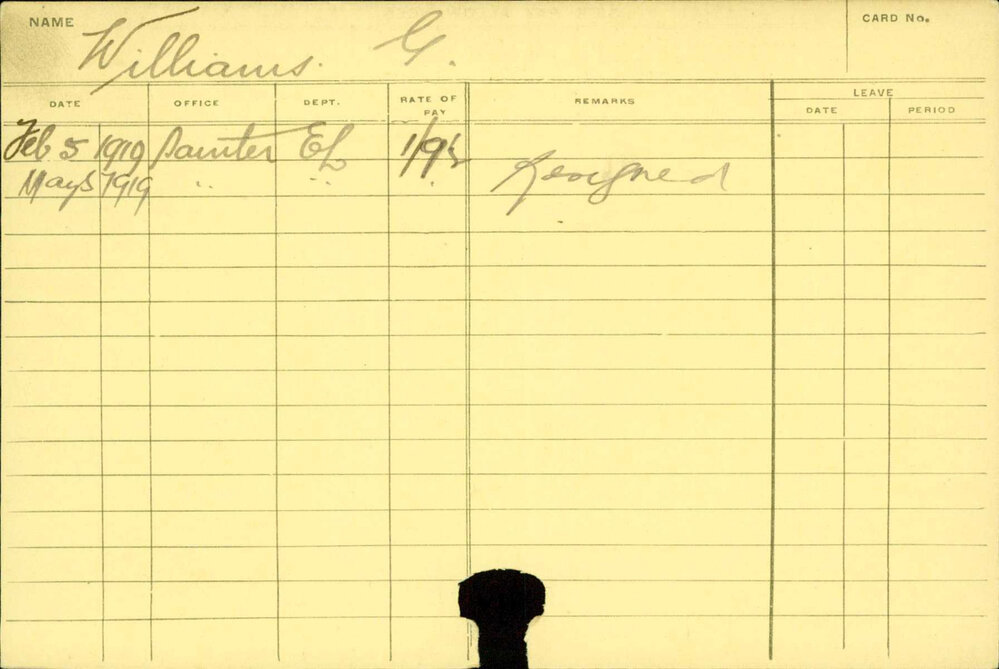 NAME Williams. G. CARD No.
DATE OFFICE DEPT. RATE OF PAY REMARKS LEAVE
DATE PERIOD
Feb 5 1919 Painter EL
May 5 1919 " " " Resigned